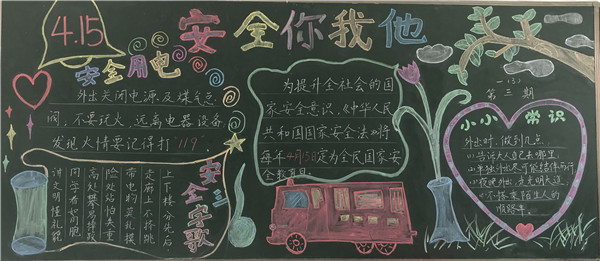 4.15
安全你我他
安全用电
外出关闭电源及煤气总
阀,不要玩火,远离电器设备
发现火情要记得打"119"。
安全三字歌
上下楼分先后
走廊上不
带电物莫乱摸
险处站怕失重
高处攀易摔跤
同学看如同胞
讲文明懂礼貌
为提升全社会的国
家安全意识,《中华人民
共和国国家安全法》将
每年4月15日定为全民国家安
全教育日。
一(3)
第三期
小小常识
外出时,做到几点
(1)告诉大人自己去哪里
(2)单独外出尽可能结伴而行
(3)夜晚外出,走光明大道
(4)不搭乘陌生人的
顺路车。